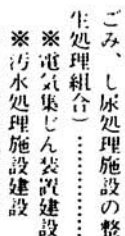 ごみ、し尿処理施設の整
生処理組合）…………
※電気集じん装置建設
※汚水処理施設建設